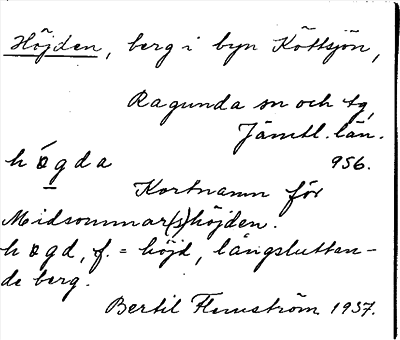 Höjden, berg i byn Köttsjön,
Ragunda sn och tg,
Jämtl. län.
høgda 956.
Kortnamn för
Midsommar(s)höjden.
høgd, f. = höjd, långsluttan-
de berg.
Bertil Flemström 1937.